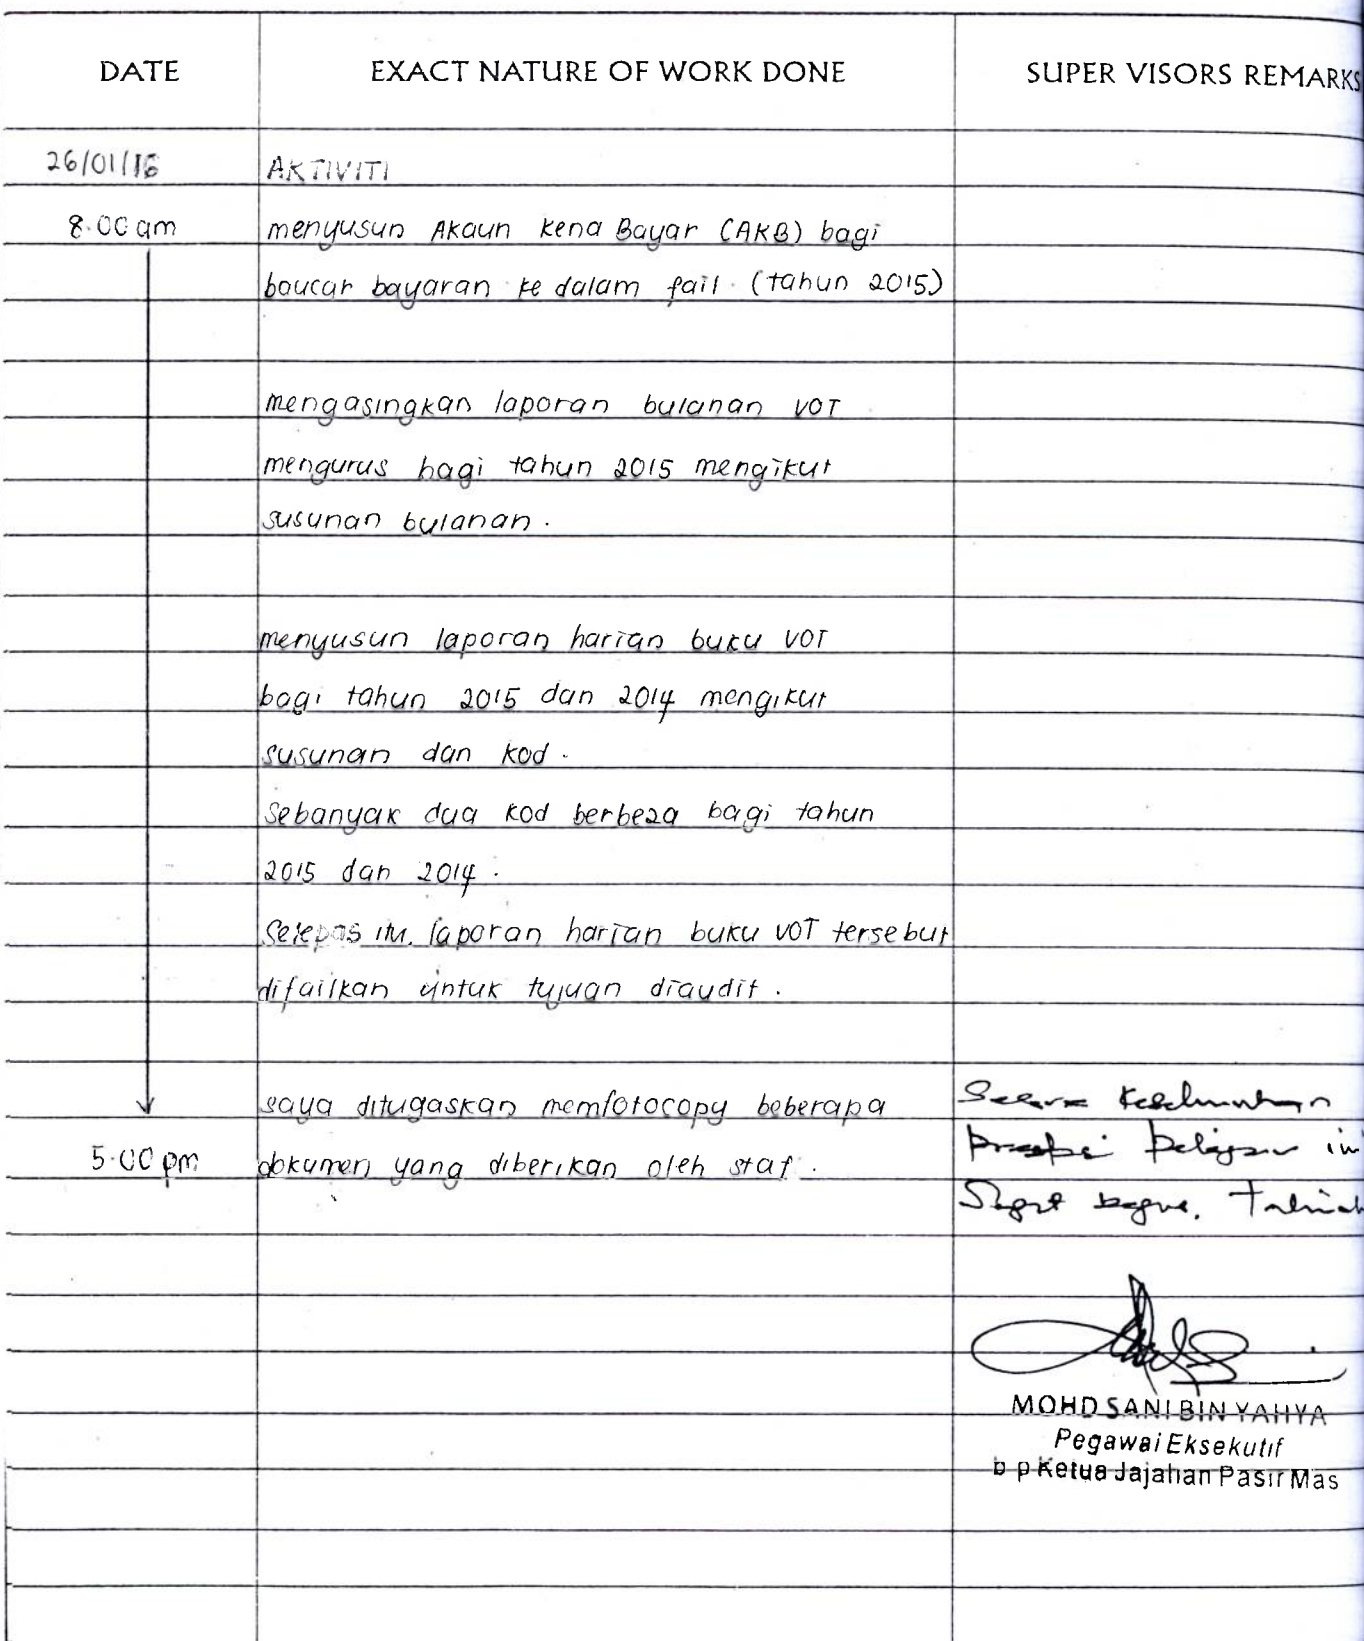 DATE EXACT NATURE OF WORK DONE SUPER VISORS REMARKS
26/01/16 AKTIVITI
8.00 am menyusun Akaun kena Bayar (AKB) bagi
baucar bayaran ke dalam fail. (tahun 2015)
mengasingkan laporan bulanan VOT
mengurus bagi tahun 2015 mengikut
susunan bulanan.
menyusun laporan harian buku VOT
bagi tahun 2015 dan 2014 mengikut
susunan dan kod.
Sebanyak dua kod berbeza bagi tahun
2015 dan 2014.
Selepas itu, laporan harian buku VOT tersebut
difailkan untuk tujuan diaudit.
saya ditugaskan memfotocopy beberapa
5.00 pm dokumen yang diberikan oleh staf.
Secara keseluruhan
prestasi pelajar ini
Sangat bagus.
MOHD SANI BIN YAHYA
Pegawai Eksekutif
b p Ketua Jajahan Pasir Mas